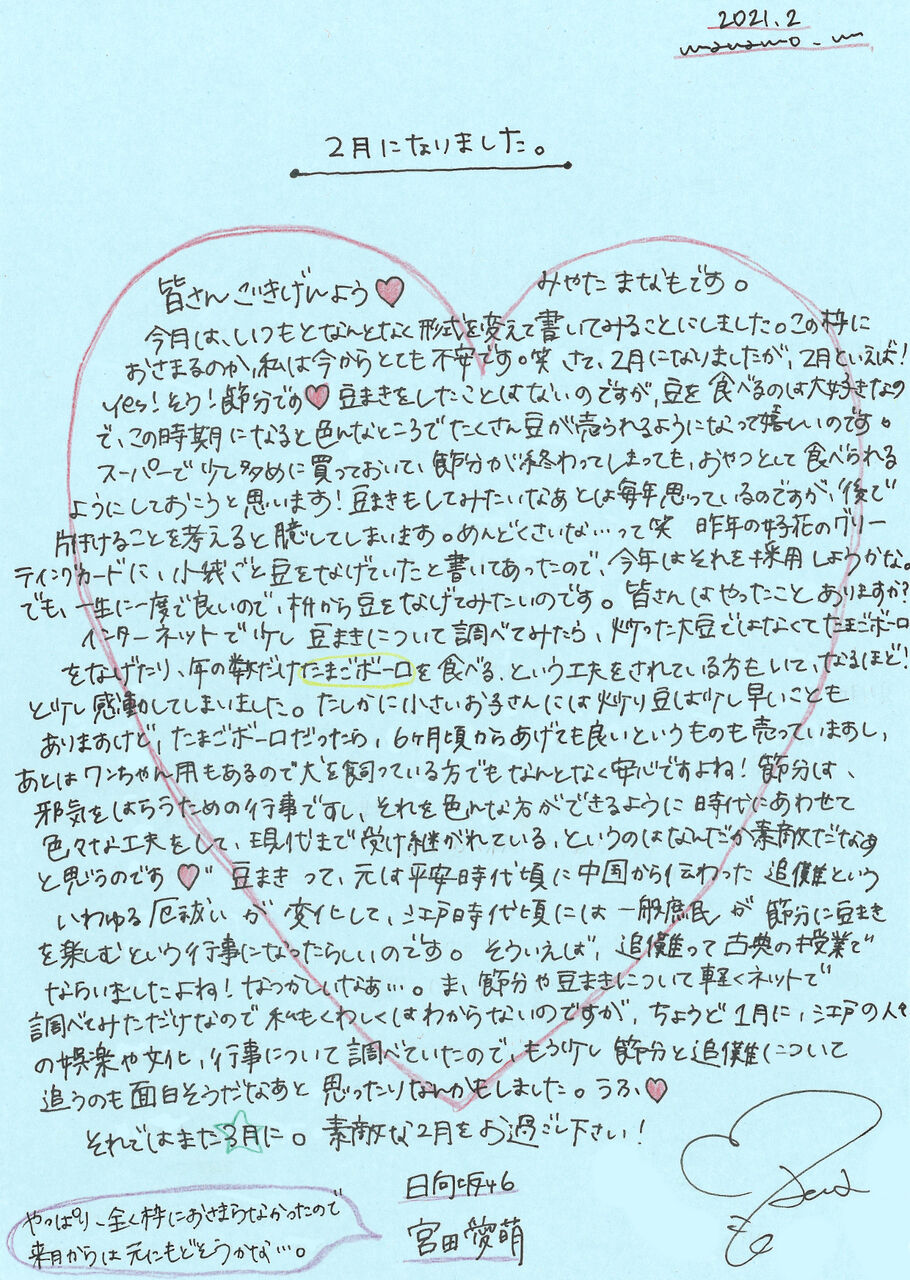 2021.2
manamo_m
2月になりました。
皆さんごきげんよう♥ みやた まなもです。
今月は、いつもとなんとなく形式を変えて書いてみることにしました。この枠に
おさまるのか、私は今からとても不安です。笑 さて、2月になりましたが、2月といえば!
yes!そう!節分です♥豆まきをしたことはないのですが、豆を食べるのは大好きなの
で、この時期になると色んなところでたくさん豆が売られるようになって嬉しいのです。
スーパーで少し多めに買っておいて、節分が終わってしまっても、おやつとして食べられる
ようにしておこうと思います!豆まきもしてみたいなあとは毎年思っているのですが、後で
片付けることを考えると臆してしまいます。めんどくさいな…って笑 昨年の好花のグリー
ティングカードに、小袋ごと豆をなげていたと書いてあったので、今年はそれを採用しようかな。
でも、一生に一度で良いので、枡から豆をなげてみたいのです。皆さんはやったことありますか?
インターネットで少し豆まきについて調べてみたら、炒った大豆ではなくてたまごボーロ
をなげたり、年の数だけたまごボーロを食べる、という工夫をされている方もいて、なるほど!
と少し感動してしまいました。たしかに小さいお子さんには炒り豆は少し早いことも
ありますけど、たまごボーロだったら、6ヶ月頃からあげても良いというものも売っていますし、
あとはワンちゃん用もあるので犬を飼っている方でもなんとなく安心ですよね!節分は、
邪気をはらうための行事ですし、それを色んな方ができるように時代にあわせて
色々な工夫をして、現代まで受け継がれている、というのはなんだか素敵だなぁ
と思うのです♥ 豆まきって、元は平安時代頃に中国から伝わった 追儺という
いわゆる厄祓いが変化して、江戸時代頃には一般庶民が節分に豆まき
を楽しむという行事になったらしいのです。そういえば、追儺って古典の授業で
ならいましたよね!なつかしいなぁ…。ま、節分や豆まきについて軽くネットで
調べてみただけなので私もくわしくはわからないのですが、ちょうど1月に、江戸の人々
の娯楽や文化、行事について調べていたので、もう少し節分と追儺について
追うのも面白そうだなあと思ったりなんかもしました。うふ♥
それではまた3月に。素敵な2月をお過ごし下さい!
日向坂46
宮田愛萌
やっぱり、全く枠におさまらなかったので
来月からは元にもどそうかな…。